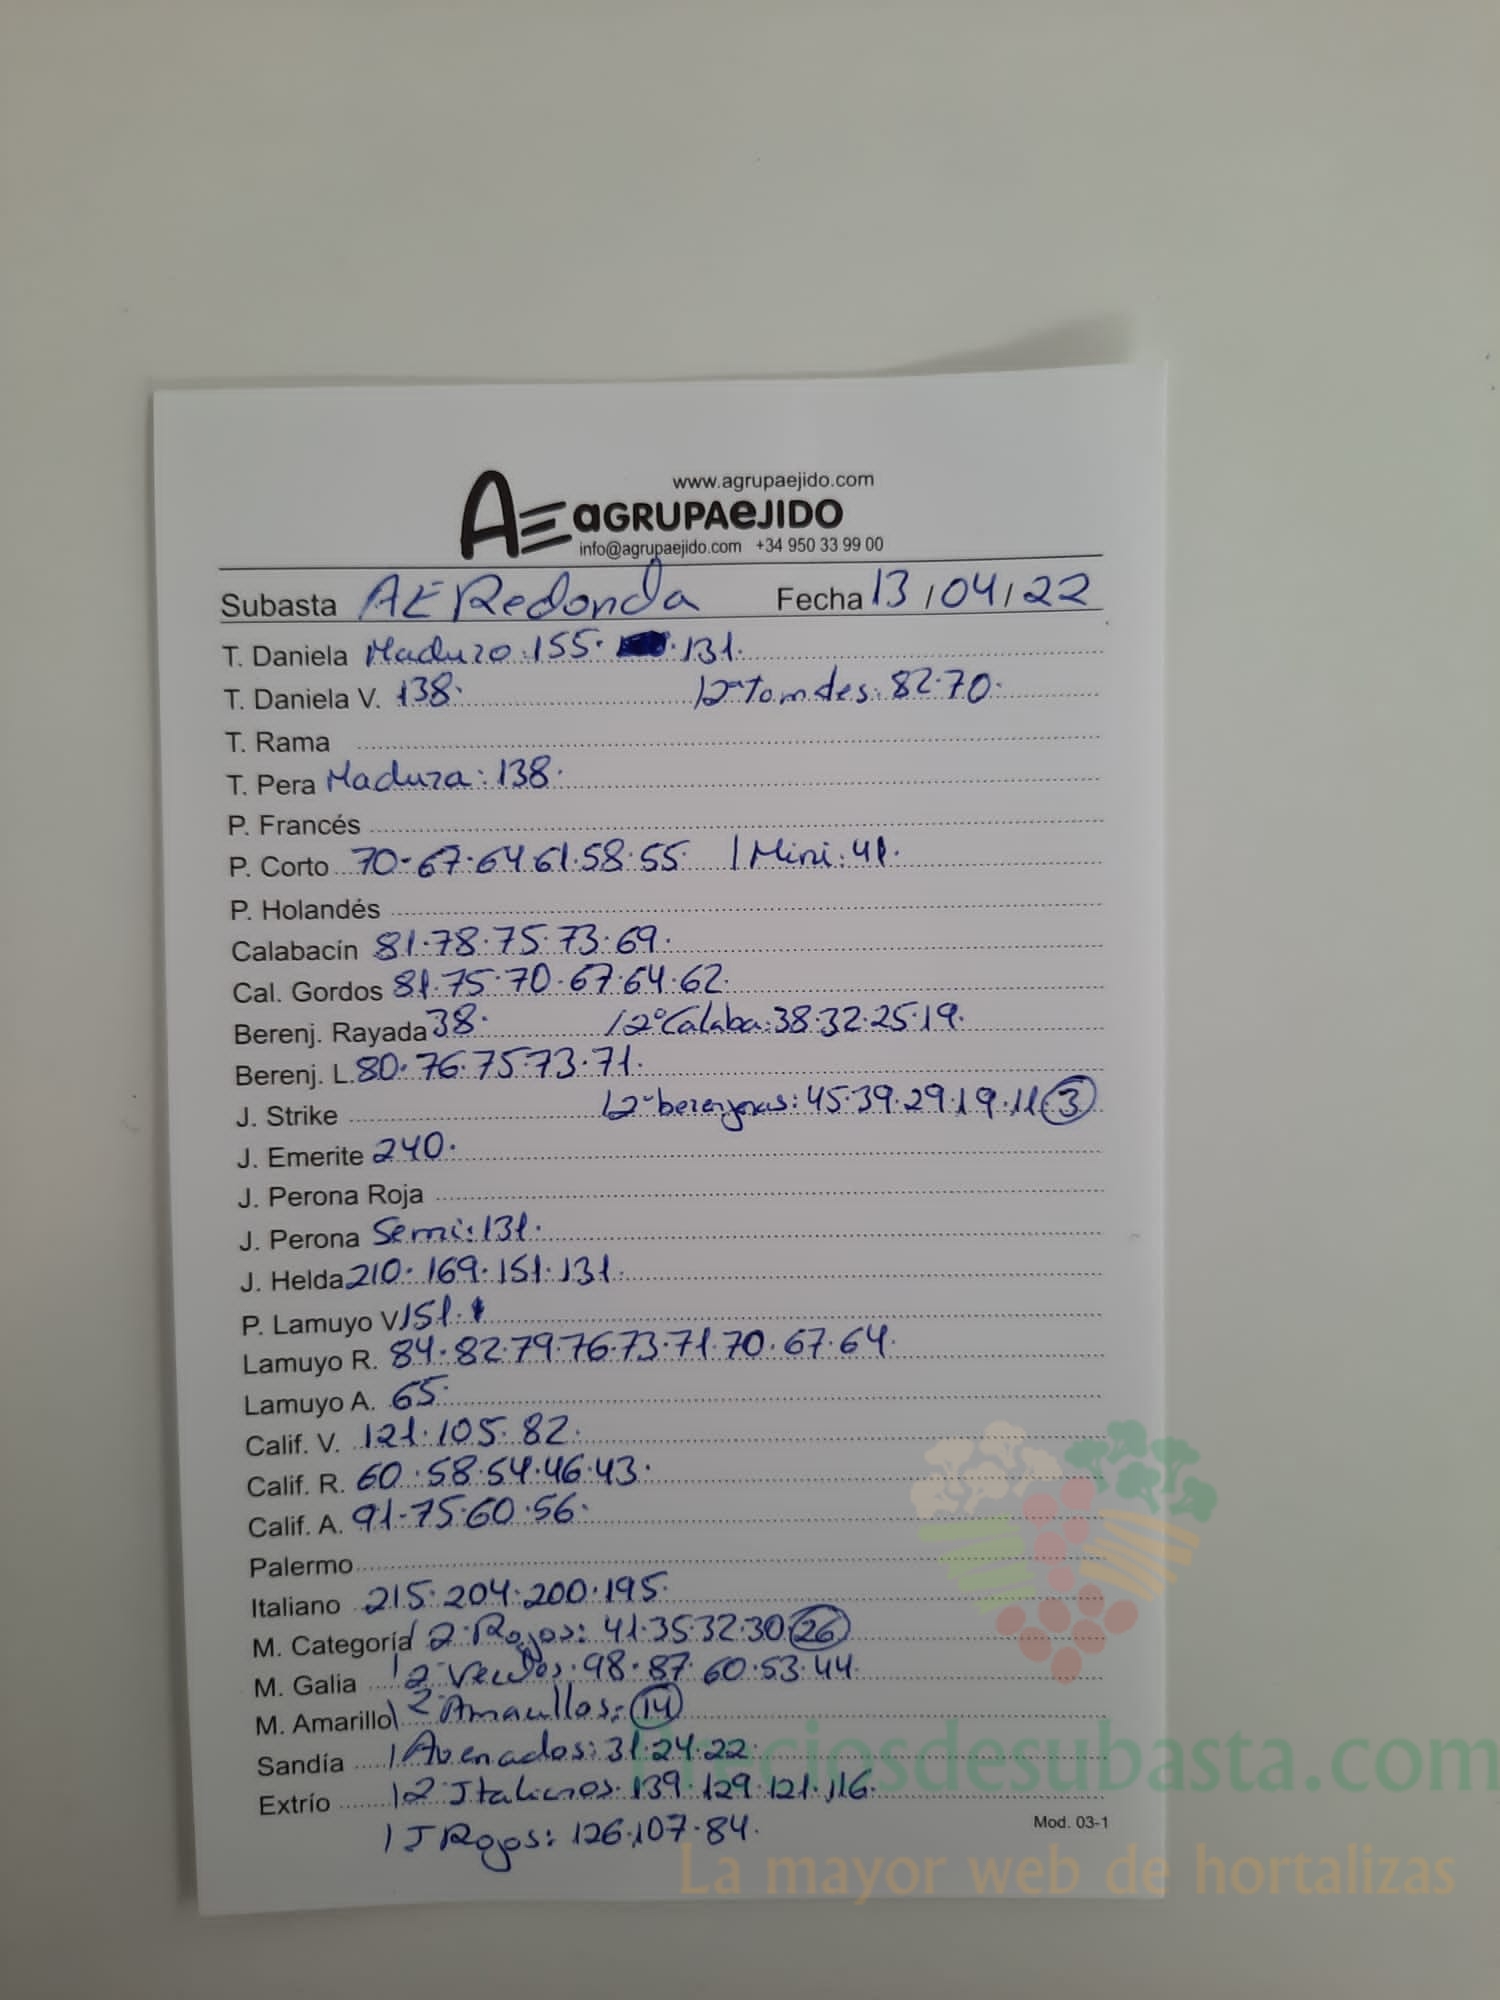 www.agrupaejido.com
AE aGRUPAeJIDO
info@agrupaejido.com +34 950 33 99 00
Subasta AE Redonda Fecha 13/04/22
T. Daniela Maduro: 155· ·131.
T. Daniela V. 138· /2ª tomdes: 82·70·
T. Rama
T. Pera Madura: 138·
P. Francés
P. Corto 70-67·64·61·58·55· /Mini: 41.
P. Holandés
Calabacín 81·78·75·73·69·
Cal. Gordos 81·75·70·67·64·62·
Berenj. Rayada 38· /2ª Calaba: 38·32·25·19·
Berenj. L. 80·76·75·73·71·
J. Strike /2ª berenjenas: 45·39·29·19·11 (3)
J. Emerite 240·
J. Perona Roja
J. Perona Semi: 131·
J. Helda 210·169·151·131·
P. Lamuyo V. 151·
Lamuyo R. 84·82·79·76·73·71·70·67·64·
Lamuyo A. 65·
Calif. V. 121·105·82·
Calif. R. 60·58·54·46·43·
Calif. A. 91-75·60·56·
Palermo
Italiano 215·204·200·195·
M. Categoría /2ª Rojos: 41·35·32·30 (26)
M. Galia /2ª Verdes·98·87·60·53·44·
M. Amarillo /2ª Amarillos: (14)
Sandía /Avenados: 31·24·22·
Extrío /2 Italianos·139·129·121·116·
/J Rojos: 126·107·84·
Mod. 03-1
Preciosdesubasta.com
La mayor web de hortalizas